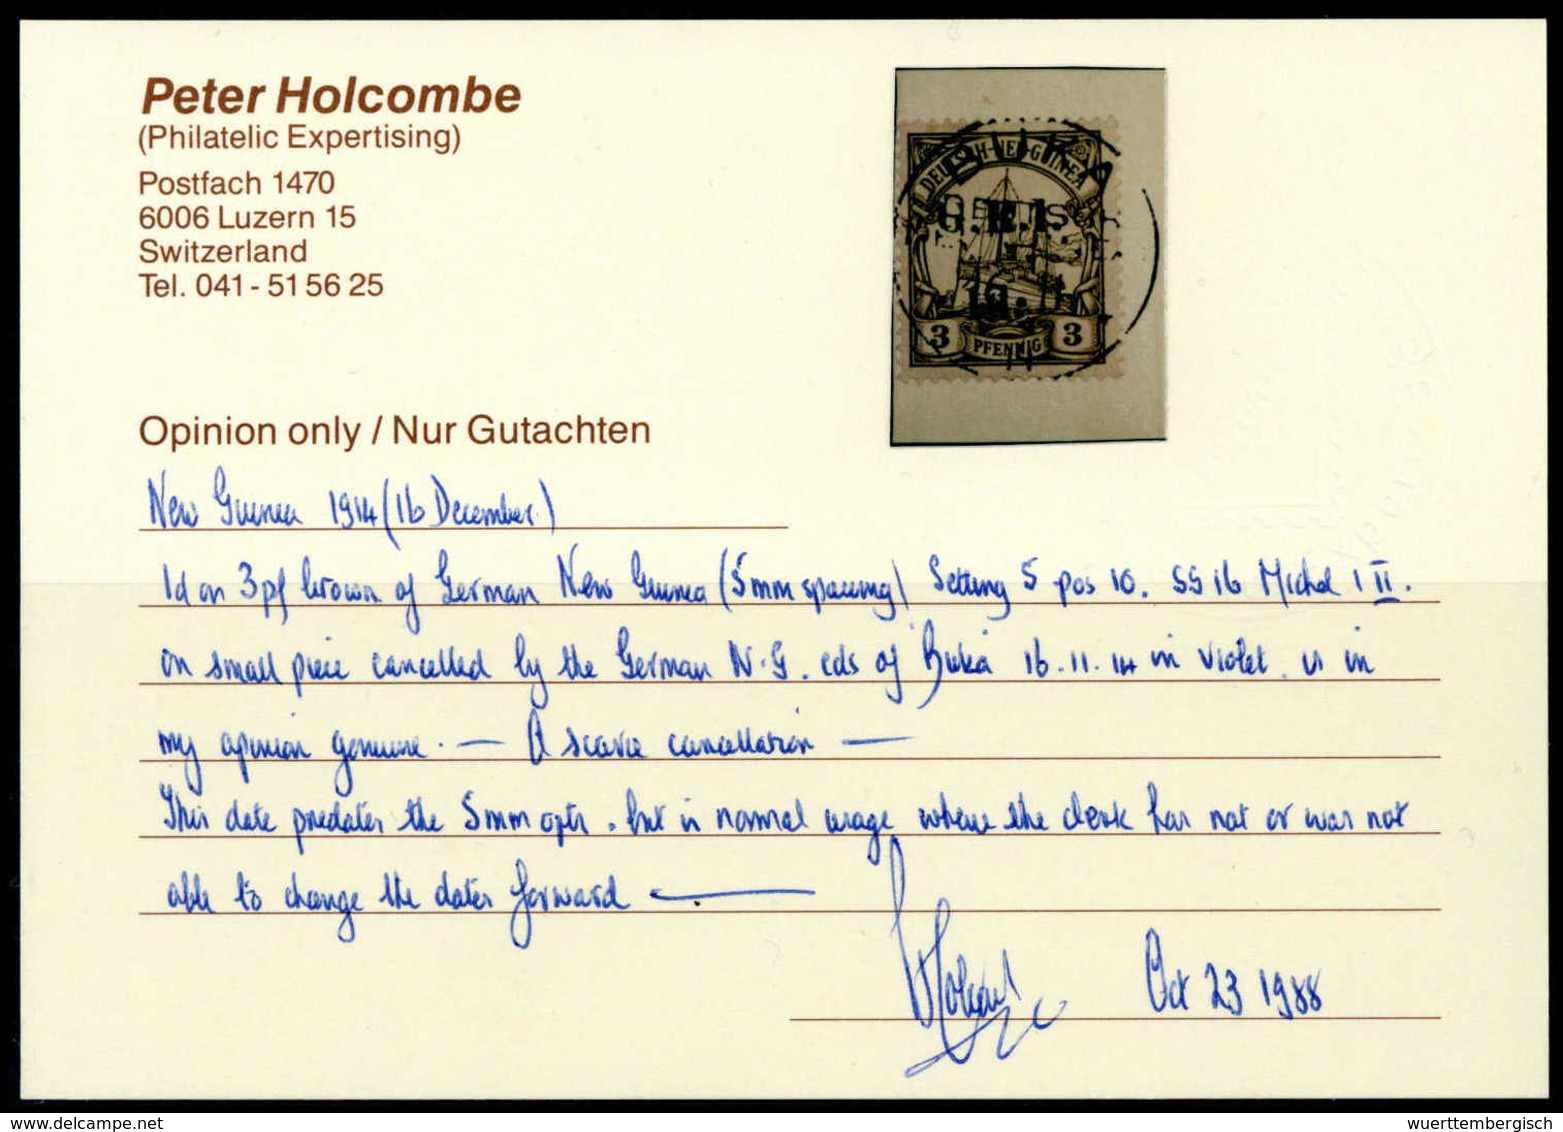 Peter Holcombe
(Philatelic Expertising)
Postfach 1470
6006 Luzern 15
Switzerland
Tel. 041 - 51 56 25
BUKA
DEUTSCH-NEU-GUINEA
G.R.I.
1d.
3 PFENNIG 3
Opinion only / Nur Gutachten
New Guinea 1914 (16 December)
1d on 3pf brown of German New Guinea (5mm spacing) Setting 5 pos 10. SG 16 Michel 1 II.
on small piece cancelled by the German N.G. cds of Buka 16.11.14 in violet. is in
my opinion genuine. — A scarce cancellation —
This date predates the 5mm opts. but is normal usage where the clerk has not or was not
able to change the dates forward —
Holcombe Oct 23 1988
delcampe.net
wuerttembergisch